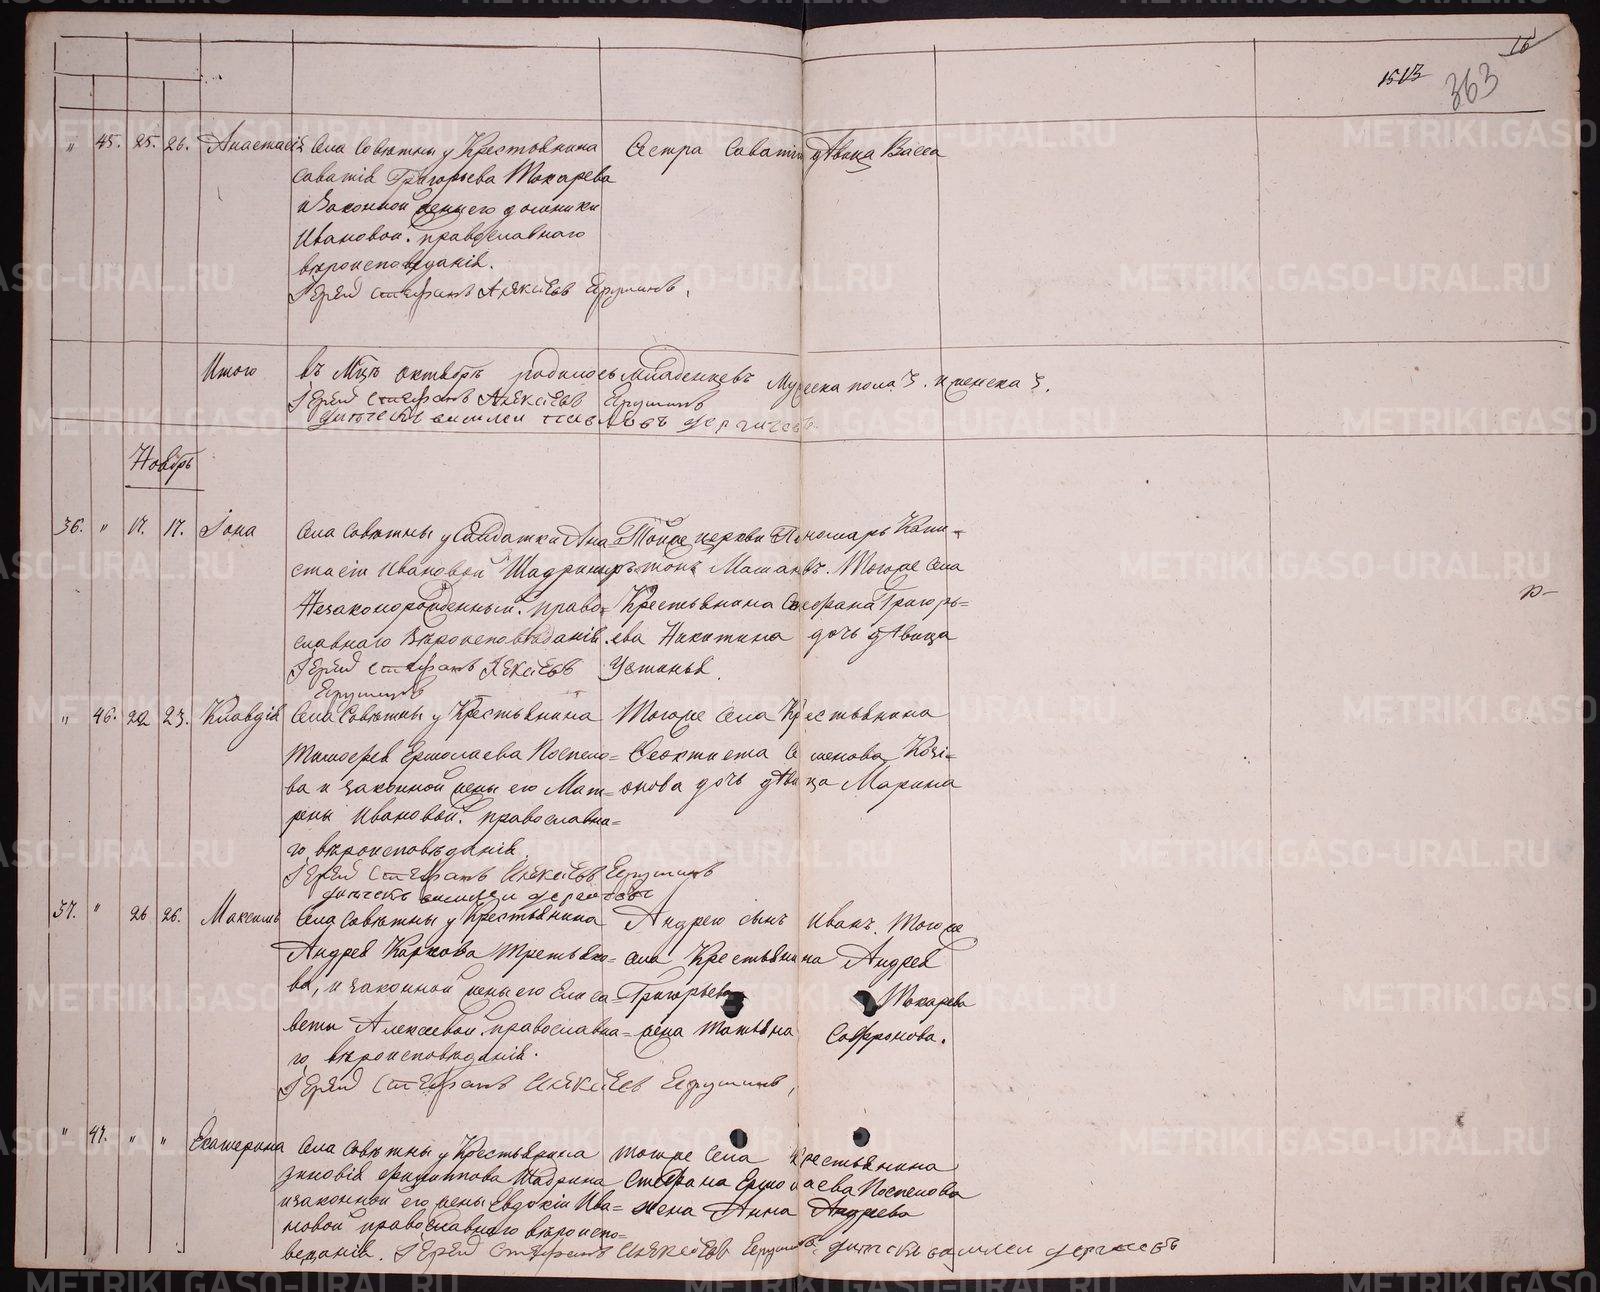 16
1513
363
" 45. 25. 26. Анастасія Села Совѣтны у Крестьянина
Саватія Григорьева Токарева
и законной жены его Домники
Ивановой. православнаго
вѣроисповѣданія.
Іерей Стефанъ Алексѣевъ
сестра Саватія дѣвица Васса
Итого въ Мцѣ октябрѣ родилось младенцевъ мужеска пола 3. и женска 3.
Іерей Стефанъ Алексѣевъ
Ноябрь
36. " 17. 17. Іона Села Совѣтны у Солдатки Ана=
стасіи Ивановой Шадриной
Незаконорожденный. право=
славнаго вѣроисповѣданія.
Іерей Стефанъ Алексѣевъ
Тойже церкви Пономарь Капи=
тонъ . Тогоже села
Крестьянина Стефана Григорь=
ева Никитина дочь дѣвица
Устинья.
" 46. 22 23. Клавдія Села Совѣтны у Крестьянина
Тимофея Ермолаева Поспело=
ва и законной жены его Мат=
рены Ивановой. православна=
го вѣроисповѣданія.
Іерей Стефанъ Алексѣевъ
Тогоже села Крестьянина
Феоктиста Семенова
дочь дѣвица Марина
37. " 26 26. Максимъ Села Совѣтны у Крестьянина
Андрея Карпова Третьяко=
ва, и законной жены его Елиса=
веты Алексѣевой. православна=
го вѣроисповѣданія.
Іерей Стефанъ Алексѣевъ
Андрею сынъ Иванъ. Тогоже
села Крестьянина Андрея
Григорьева Токарева
жена Татьяна Софронова.
" 47. " " Екатерина Села Совѣтны у Крестьянина
Зиновія Филиппова Шадрина
и законной его жены Евдокіи Ива=
новой православнаго вѣроиспо=
веданія. Іерей Стефанъ Алексѣевъ
тогоже села крестьянина
Стефана Ермолаева Поспелова
жена Анна Андреева
METRIKI.GASO-URAL.RU